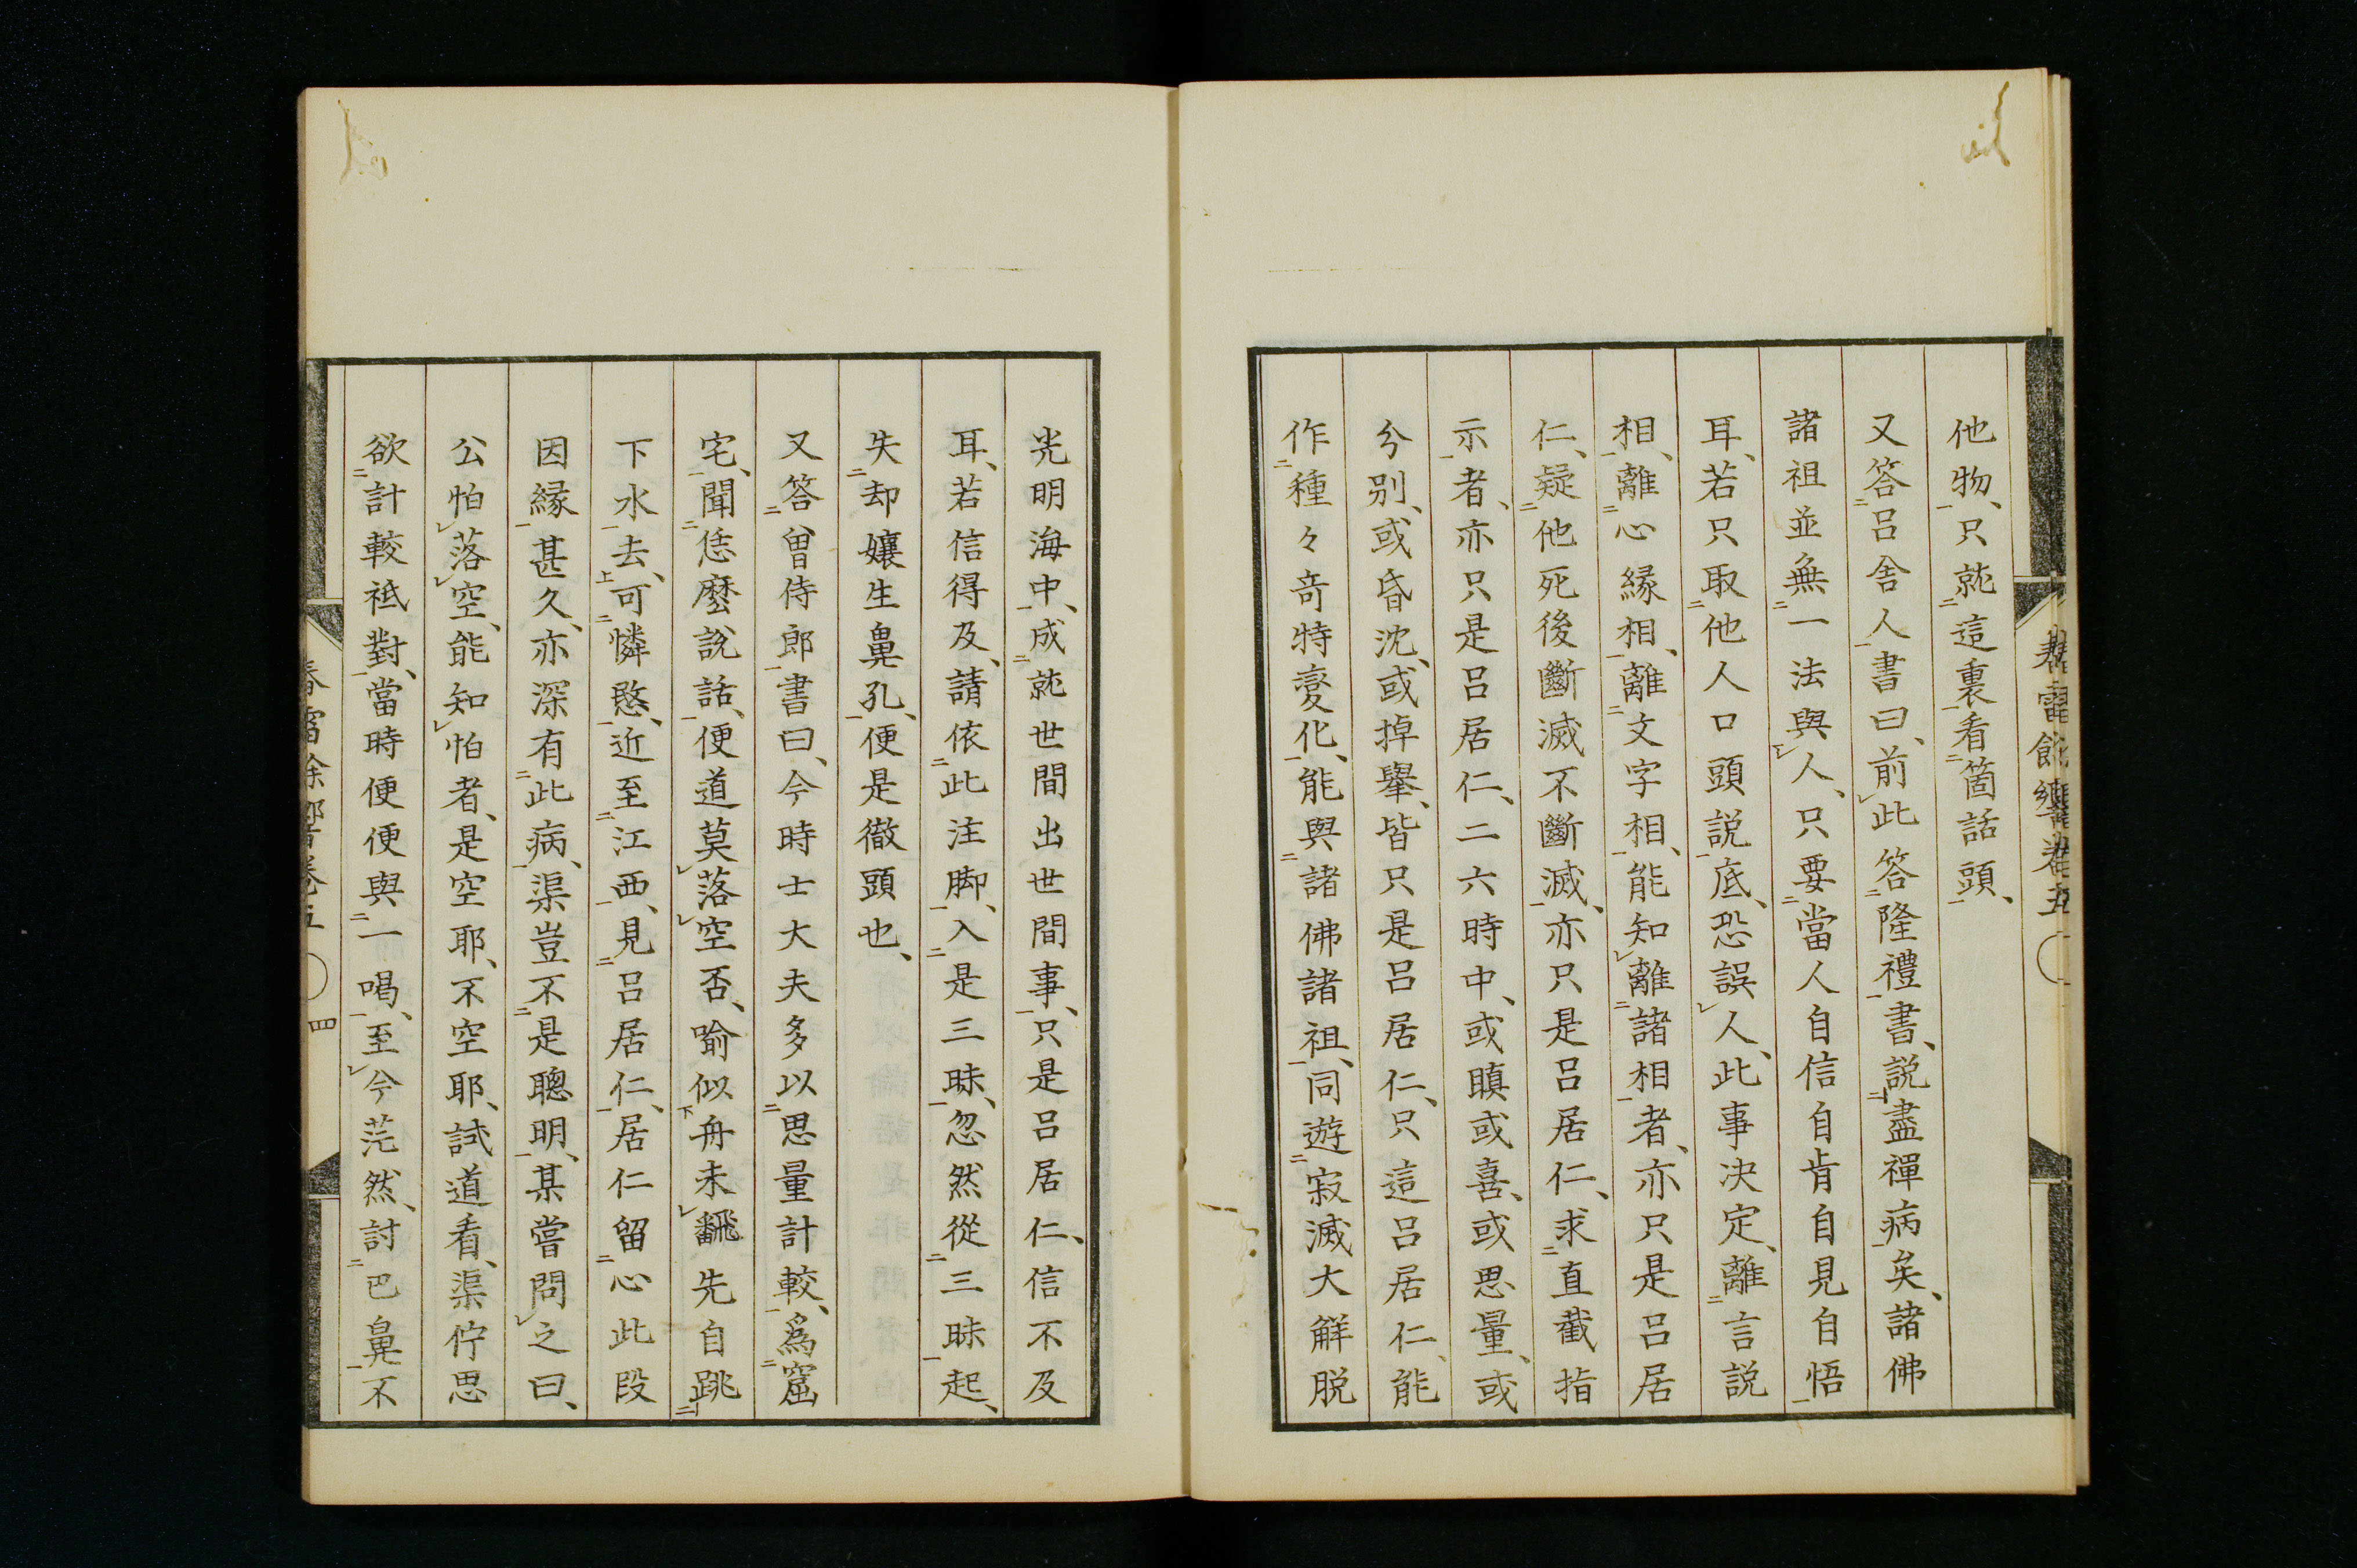 他物、只就這裏看箇話頭、
又答呂舎人書曰、前此答隆禮書、説盡禪病矣、諸佛
諸祖並無一法與人、只要當人自信自肯自見自悟
耳、若只取他人口頭説底、恐誤人、此事决定、離言説
相、離心緣相、離文字相、能知離諸相者、亦只是呂居
仁、疑他死後斷滅不斷滅、亦只是呂居仁、求直截指
示者、亦只是呂居仁、二六時中、或瞋或喜、或思量、或
分別、或昏沈、或掉擧、皆只是呂居仁、只這呂居仁、能
作種々奇特變化、能與諸佛諸祖、同遊寂滅大解脱
光明海中、成就世間出世間事、只是呂居仁、信不及
耳、若信得及、請依此注脚、入是三昧、忽然從三昧起、
失却孃生鼻孔、便是徹頭也、
又答曾侍郎書曰、今時士大夫多以思量計較、爲窟
宅、聞恁麼說話、便道莫落空否、喩似舟未翻先自跳
下水去、可憐愍、近至江西、見呂居仁、居仁留心此段
因緣甚久、亦深有此病、渠豈不是聰明、某嘗問之曰、
公怕落空、能知怕者、是空耶、不空耶、試道看、渠佇思
欲計較祗對、當時便便與一喝、至今茫然、討巴鼻不
四